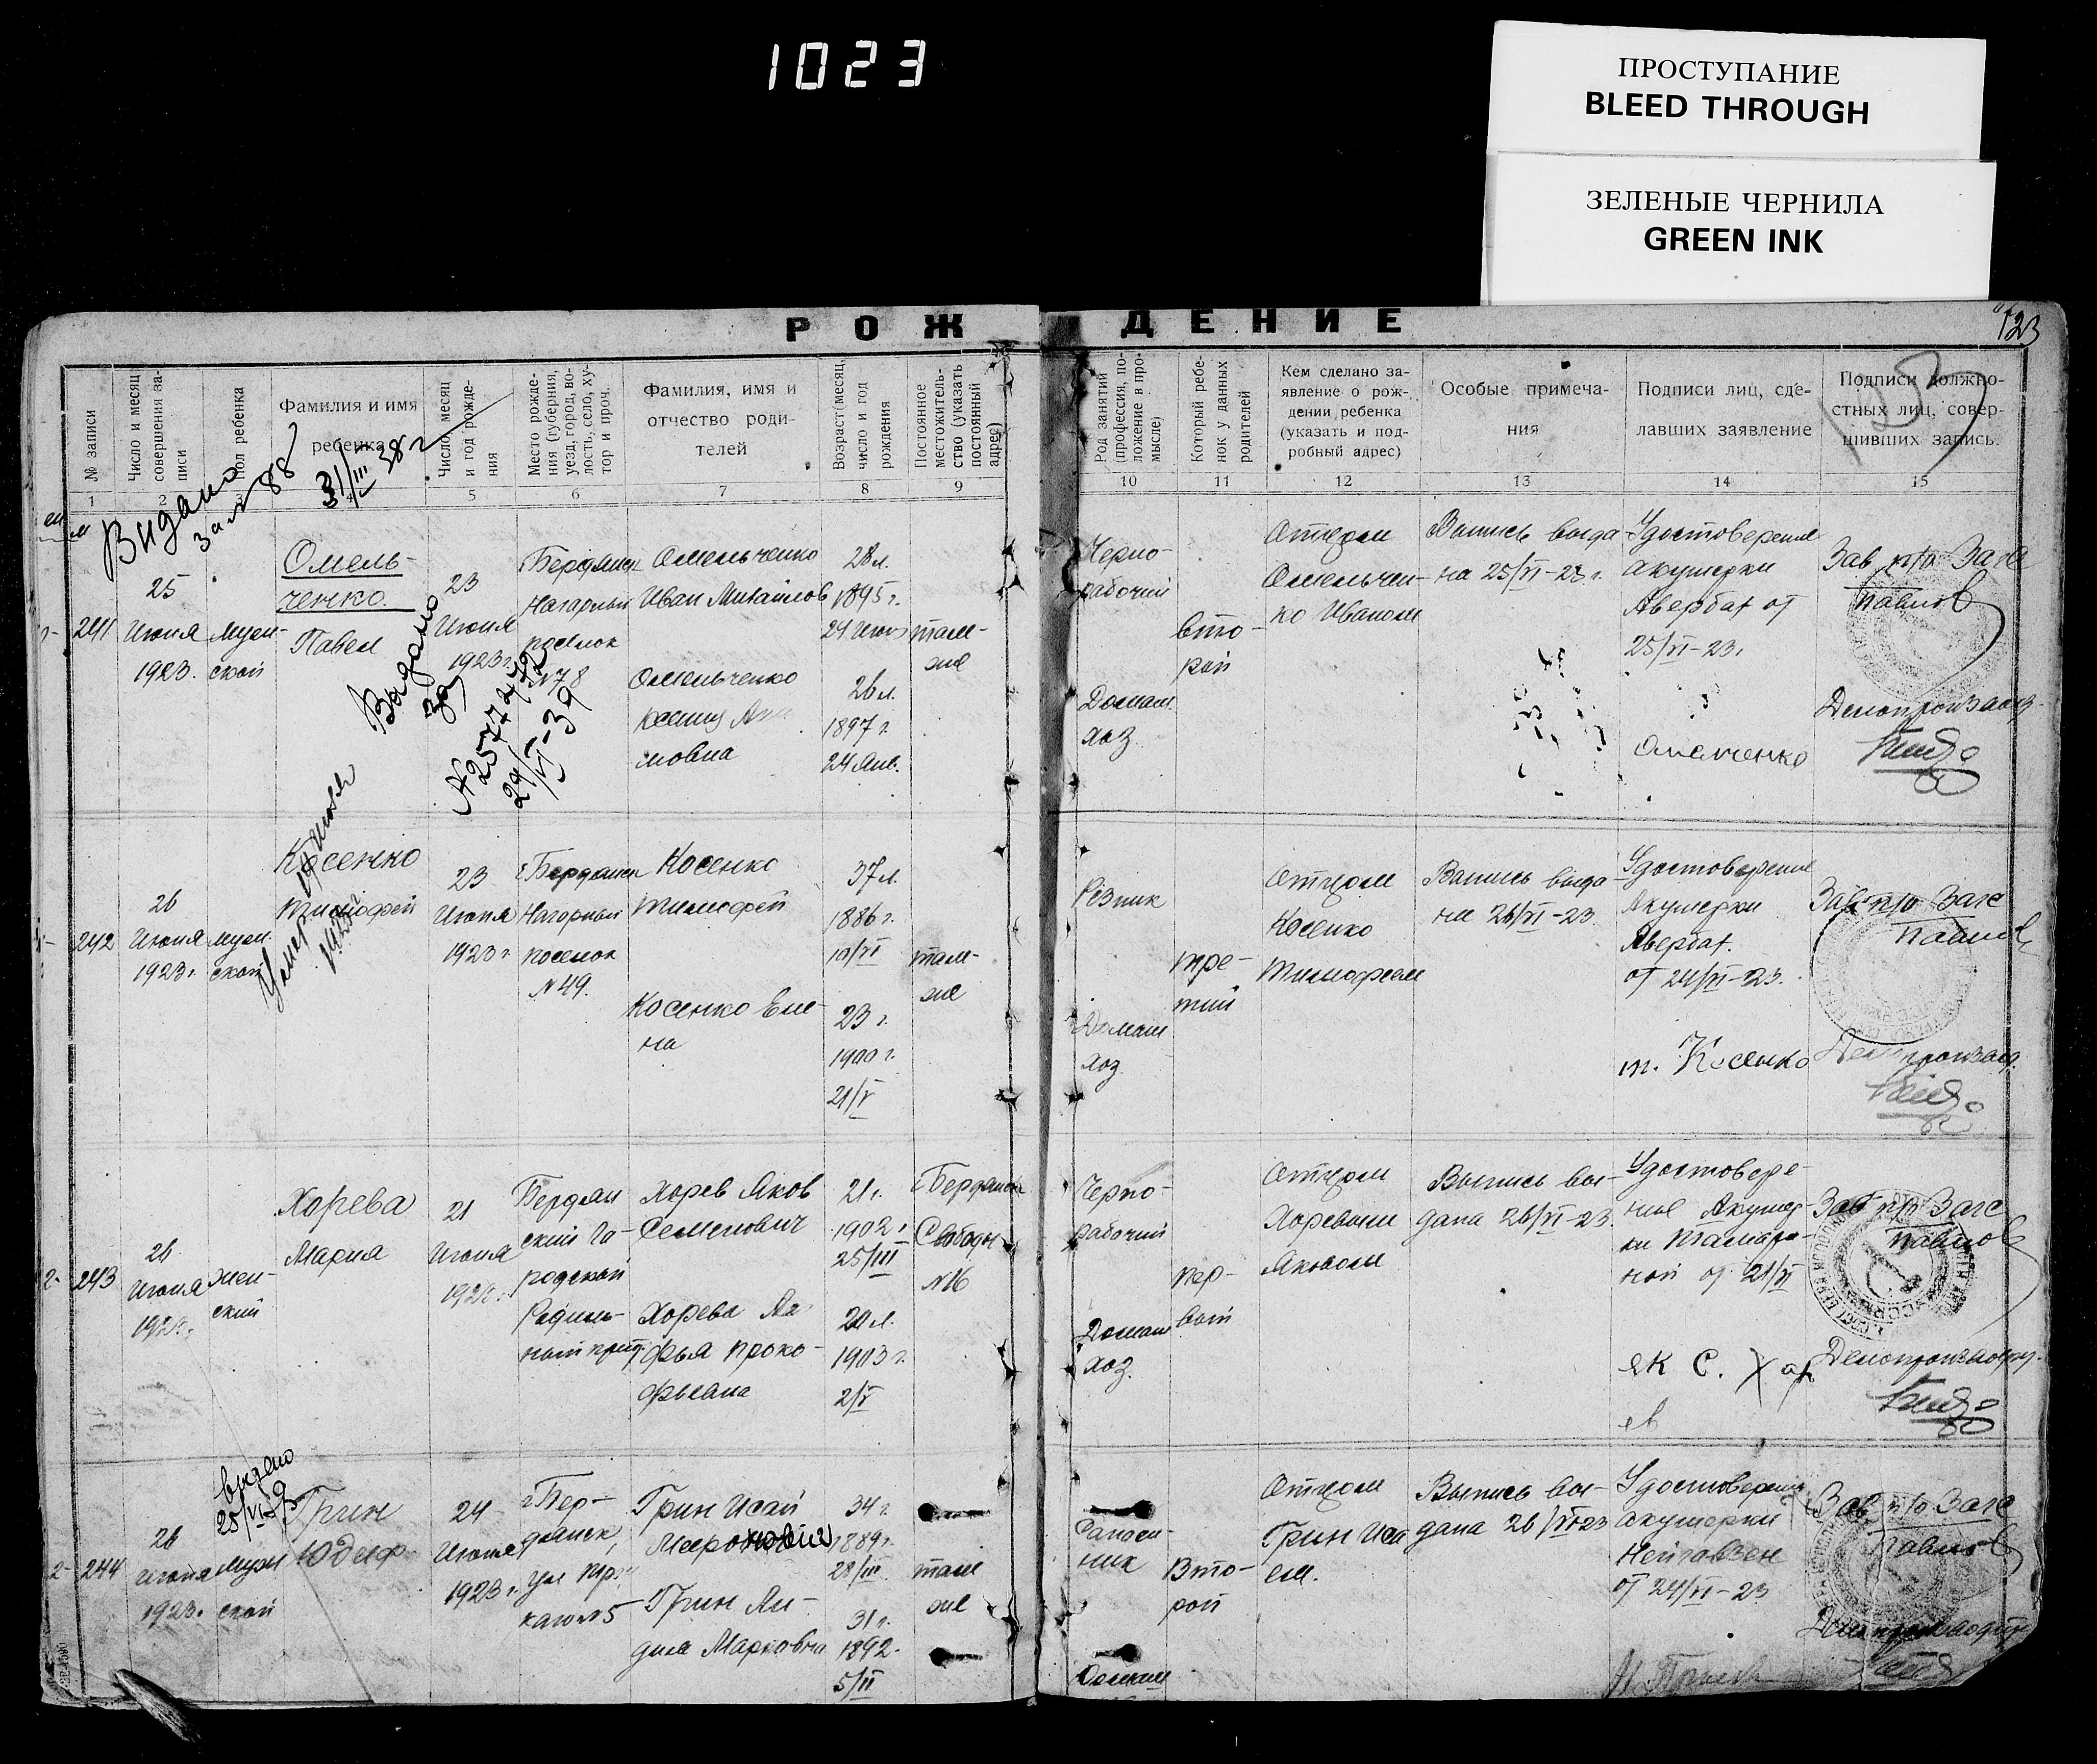 1023
ПРОСТУПАНИЕ
BLEED THROUGH
ЗЕЛЕНЫЕ ЧЕРНИЛА
GREEN INK
РОЖДЕНИЕ
123
№ записи
Число и месяц совершения за-
писи
пол ребенка
Фамилия и имя
ребенка
Число, месяц
и год рожде-
ния
Место рожде-
ния (губерния,
уезд, город, во-
лость, село, ху-
тор и проч.
Фамилия, имя и
отчество роди-
телей
Возраст (месяц,
число и год
рождения
Постоянное
местожитель-
ство (указать
постоянный
адрес)
Род занятий
(профессия, по-
ложение в про-
мысле)
Который ребе-
нок у данных
родителей
Кем сделано за-
явление о рож-
дении ребенка
(указать и под-
робный адрес)
Особые примеча-
ния
Подписи лиц, сде-
лавших заявление
Подписи должно-
стных лиц, совер-
шивших запись.
1 2 3 4 5 6 7 8 9 10 11 12 13 14 15
Видано
за № 88
31/III 38 г
241
25
Июня
1923.
муж-
ской
Омель-
ченко.
Павел
Видано
за
24/VI-39
23
Июня
1923 г.
Бердянск
Нагорный
поселок
№ 78
Омельченко
Иван Михайлов
Омельченко
28 л.
1895 г.
26 л.
1897 г.
24 Янв.
там-
же
Черно-
рабочий
Домаш.
хоз.
вто-
рой
Отцом
Омельчен-
ко Иваном
Выпись выда
на 25/VI-23 г.
Удостоверения
акушерки
Авербах от
25/VI-23 г.
Омелченко
Зав п/о Загс
Павлов
Делопроизвод.
242
26
Июня
1923 г.
муж.
ской
Косенко
Тимофей
Умер
23
Июня
1923 г
г. Бердянск
Нагорный
поселок
№ 49.
Косенко
Тимофей
Косенко Еле-
на
37 л.
1886 г.
10/VI
23 г.
1900 г.
21/V
там-
же
Різник
Домаш
хоз.
тре-
тий
Отцом
Косенко
Тимофеем
Выпись выда
на 26/VI-23
Удостоверения
Акушерки
Авербах.
от 24/VI-23.
т. Косенко
Зав п/о Загс
Павлов
Делопроизвод.
243
26
Июня
жен-
ский
Хорева
Мария
21
Июня
Бердян
ский Го-
родской
Родиль-
ный прит
Хорев Яков
Семенович
Хорева Ага
фья Проко-
фьевна
21 г.
1902 г.
25/III
20 л.
1903 г.
2/V
г. Бердянск
Свободы
№ 16
Черно-
рабочий
Домаш
хоз.
пер-
вый
Отцом
Хоревым
Яковом
Выпись вы-
дана 26/VI-23.
Удостовере-
ние Акушер-
ки
от 21/VI
як С. Хар
ев
Зав п/о Загс
Павлов
Делопроизвод.
244
26
Июня
1923.
муж
ской
25/VI
Грин
24
Июня
1923 г.
г. Бер-
дянск,
№ 5
Грин Исай
Грин Ли-
Марковна
34 г.
1889 г.
28/III
31 г.
1892.
5/II
там
же
Домаш
Вто-
рой
Отцом
Грин Иса
ем.
Выпись вы-
дана 26/VI 23
Удостоверения
акушерки
от 24/VI-23
Зав п/о Загс
Павлов